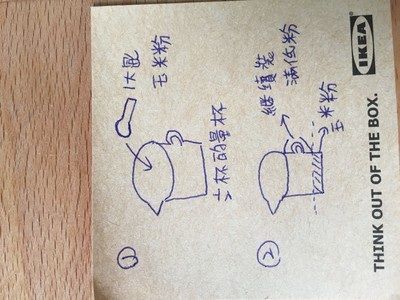 ① 1大匙
玉米粉
½杯的量杯
② 繼續裝
滿低粉
玉米粉
THINK OUT OF THE BOX.
IKEA